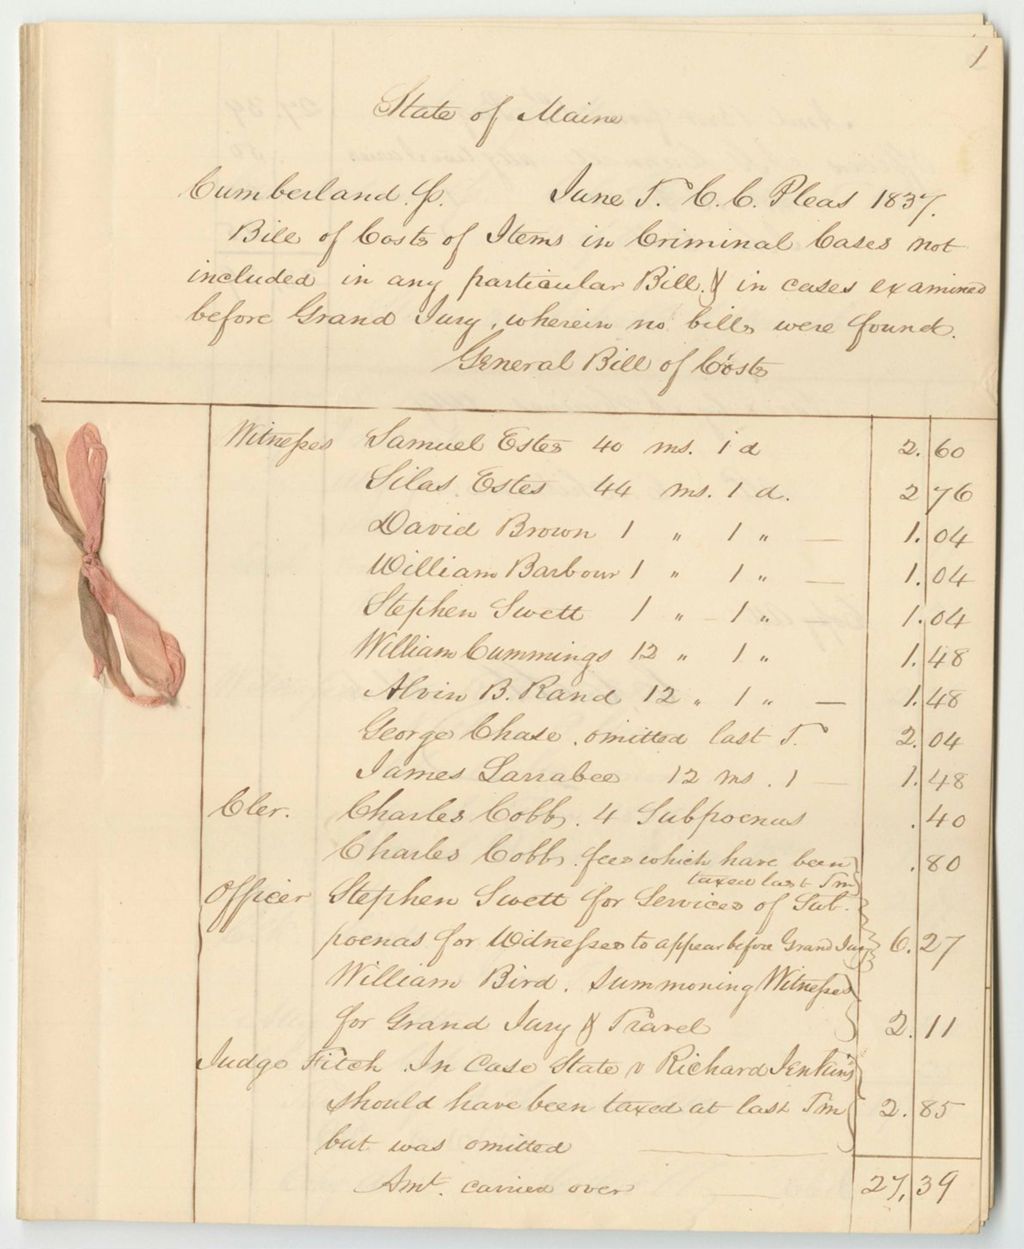 1
State of Maine
Cumberland ſs. June T. C. C. Pleas 1837.
Bill of Costs of Items in Criminal Cases not
included in any particular Bill, & in cases examined
before Grand Jury, wherein no bills were found.
General Bill of Costs
Witneſses Samuel Estes 40 ms. 1 d 2.60
Silas Estes 44 ms. 1 d. 2 76
David Brown 1 " 1 " — 1.04
William Barbour 1 " 1 " — 1.04
Stephen Swett 1 " 1 " 1.04
William Cummings 12 " 1 " 1.48
Alvin B. Rand 12 " 1 " — 1.48
George Chase. omitted last T. 2.04
James Larrabee 12 ms. 1 — 1.48
Cler. Charles Cobb. 4 Subpoenas .40
Charles Cobb. fees which have been .80
taxed last Tm
Officer Stephen Swett for Services of Sub-
poenas for Witneſses to appear before Grand Jury 6.27
William Bird. Summoning Witneſses
for Grand Jury & Travel 2.11
Judge Fitch. In Case State v Richard Jenkins
should have been taxed at last Tm 2.85
but was omitted —
Amt. carried over 27,39